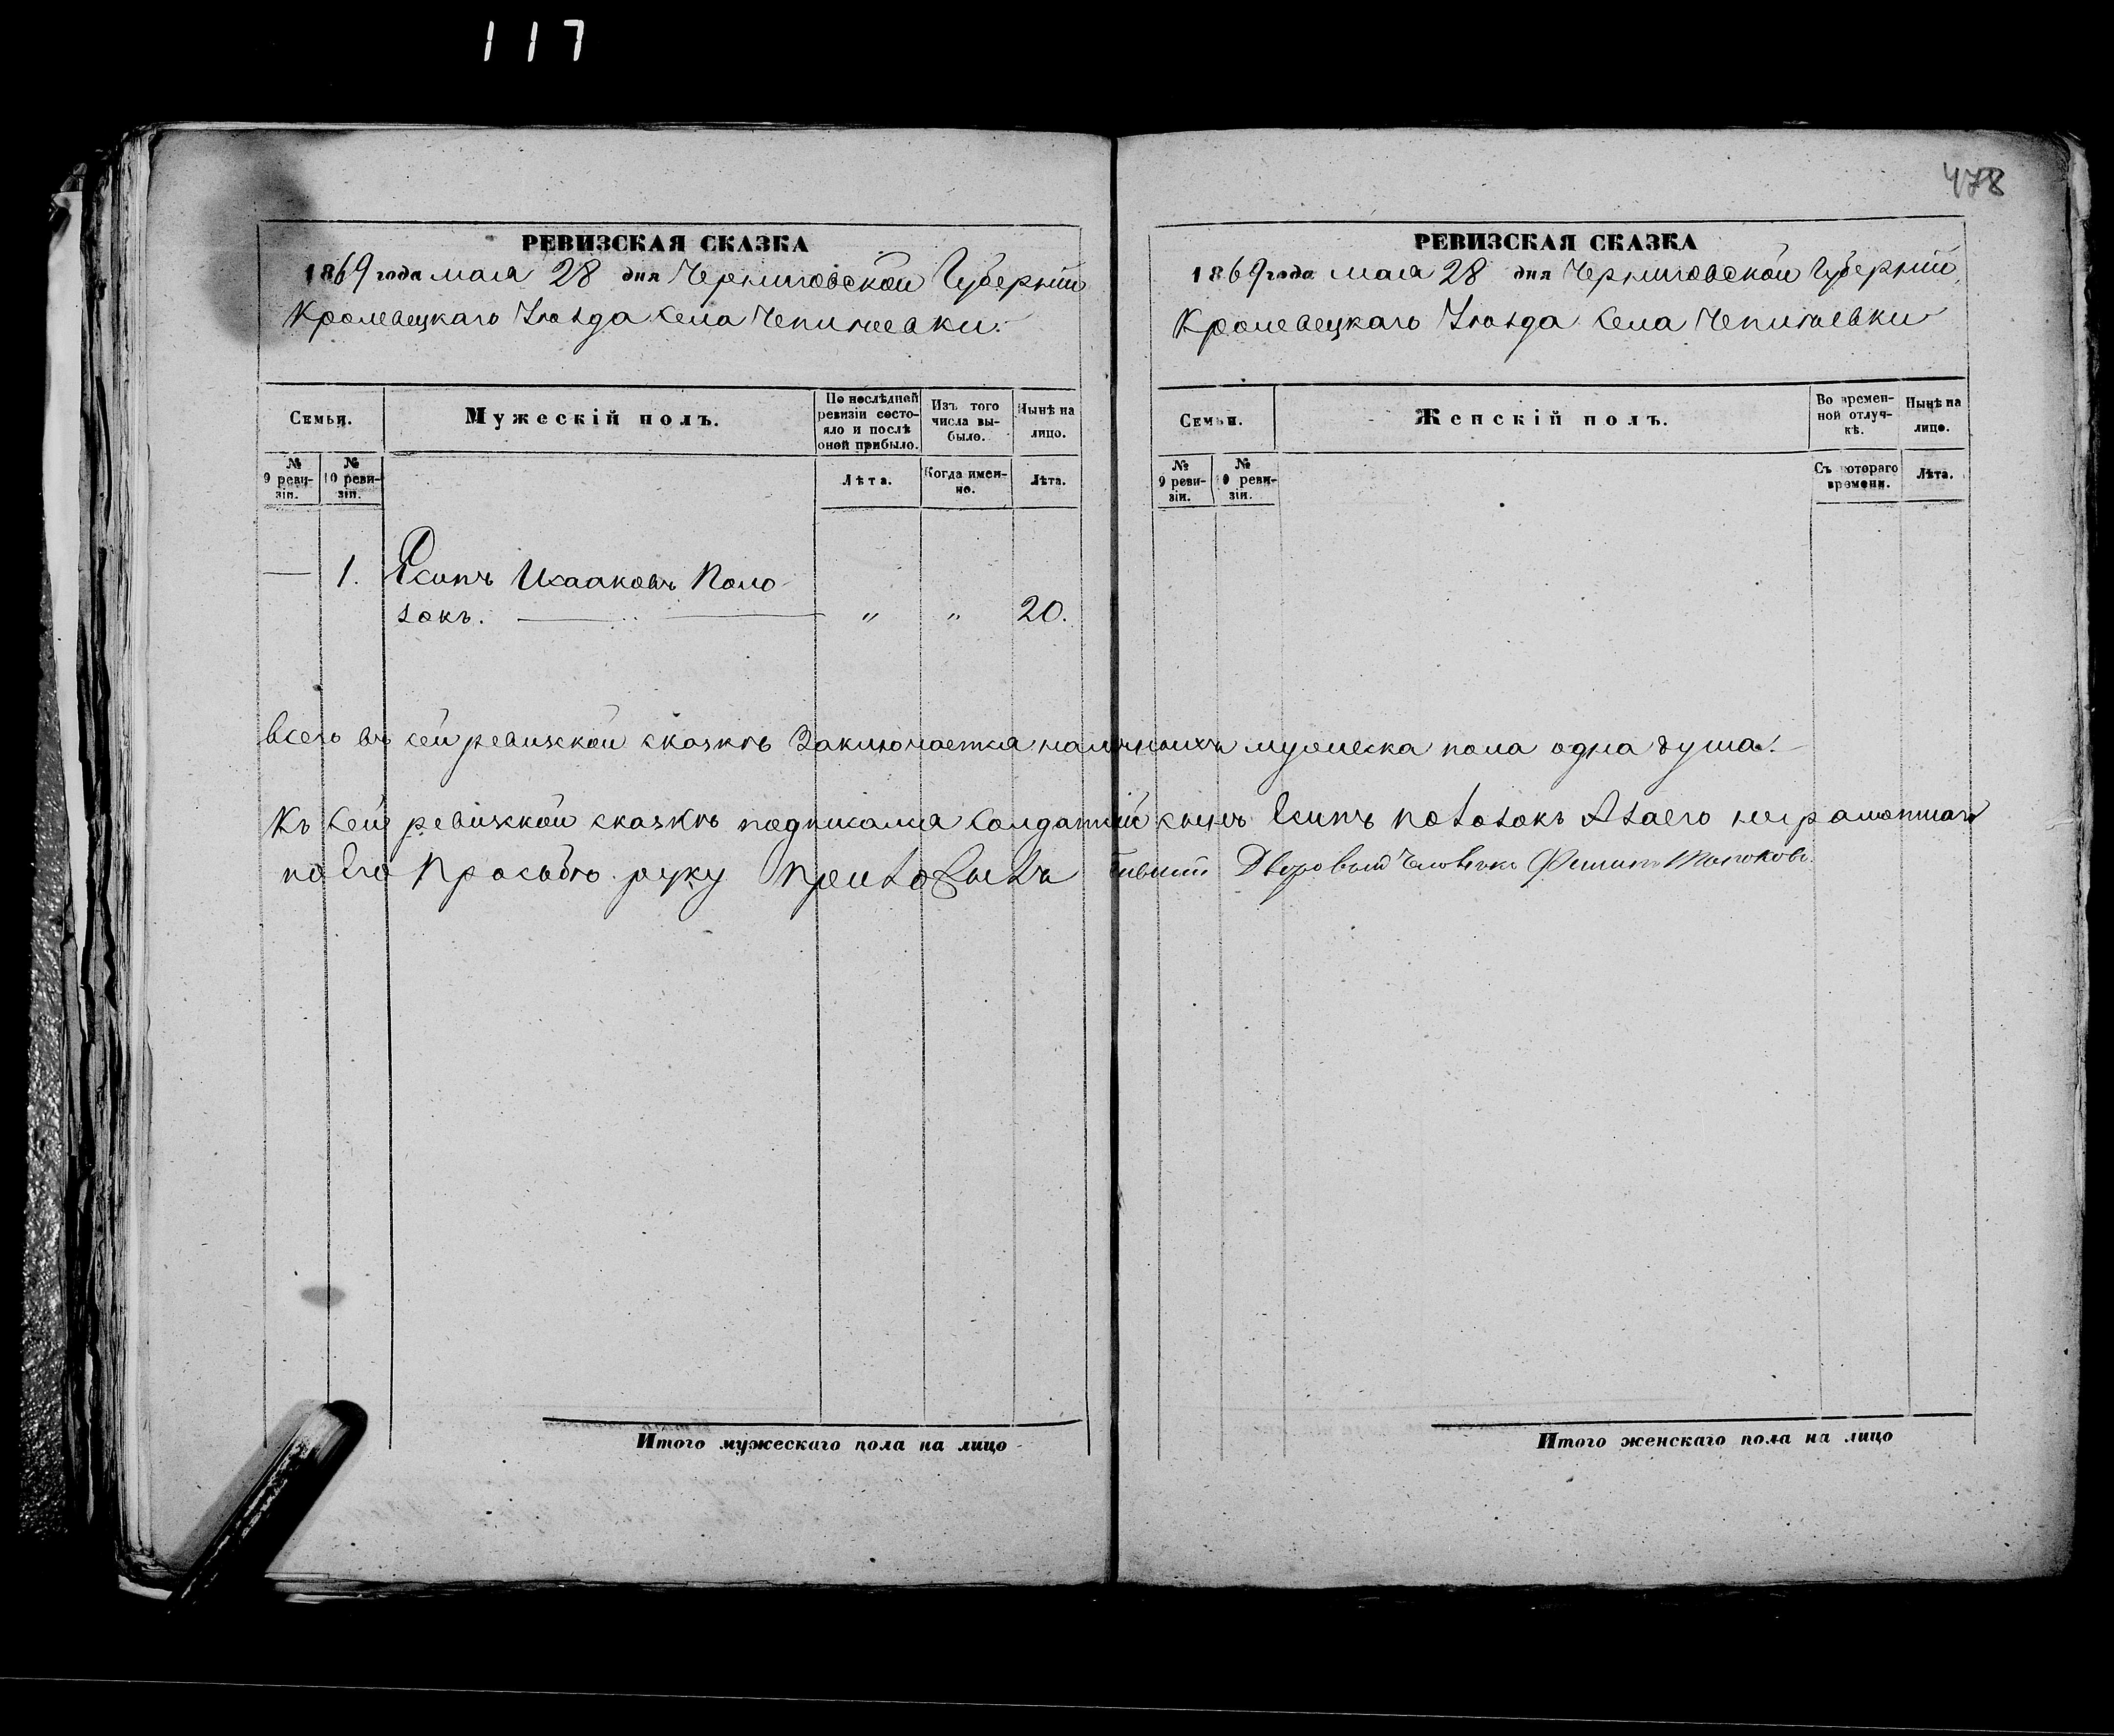 117
478
РЕВИЗСКАЯ СКАЗКА
1869 года мая 28 дня Черниговской Губерніи
Кролевецкаго Уѣзда села Чепиѣевки.
Семьи.
Мужескій полъ.
По послѣдней ревизіи состояло и послѣ оной прибыло.
Изъ того числа выбыло.
Нынѣ на лицо.
№ 9 ревизіи.
№ 10 ревизіи.
Лѣта.
Когда именно.
Лѣта.
— 1. Исааковъ Поло
зокъ. " " 20.
РЕВИЗСКАЯ СКАЗКА
1869 года мая 28 дня Черниговской Губерніи
Кролевецкаго Уѣзда села
Семьи.
Женскій полъ.
Во временной отлучкѣ.
Нынѣ на лицо.
№ 9 ревизіи.
№ 10 ревизіи.
Съ котораго времени.
Лѣта.
Всего въ сей ревизкой сказкѣ заключается наличныхъ мужеска пола одна душа.
Къ сей ревизкой сказкѣ подписался солдаткій сынъ Есипъ Полозокъ Азаего неграмотнаго
по Его Прозьбѣ руку приложилъ бывшій Дворовый Человѣкъ Филипъ
Итого мужескаго пола на лицо
Итого женскаго пола на лицо